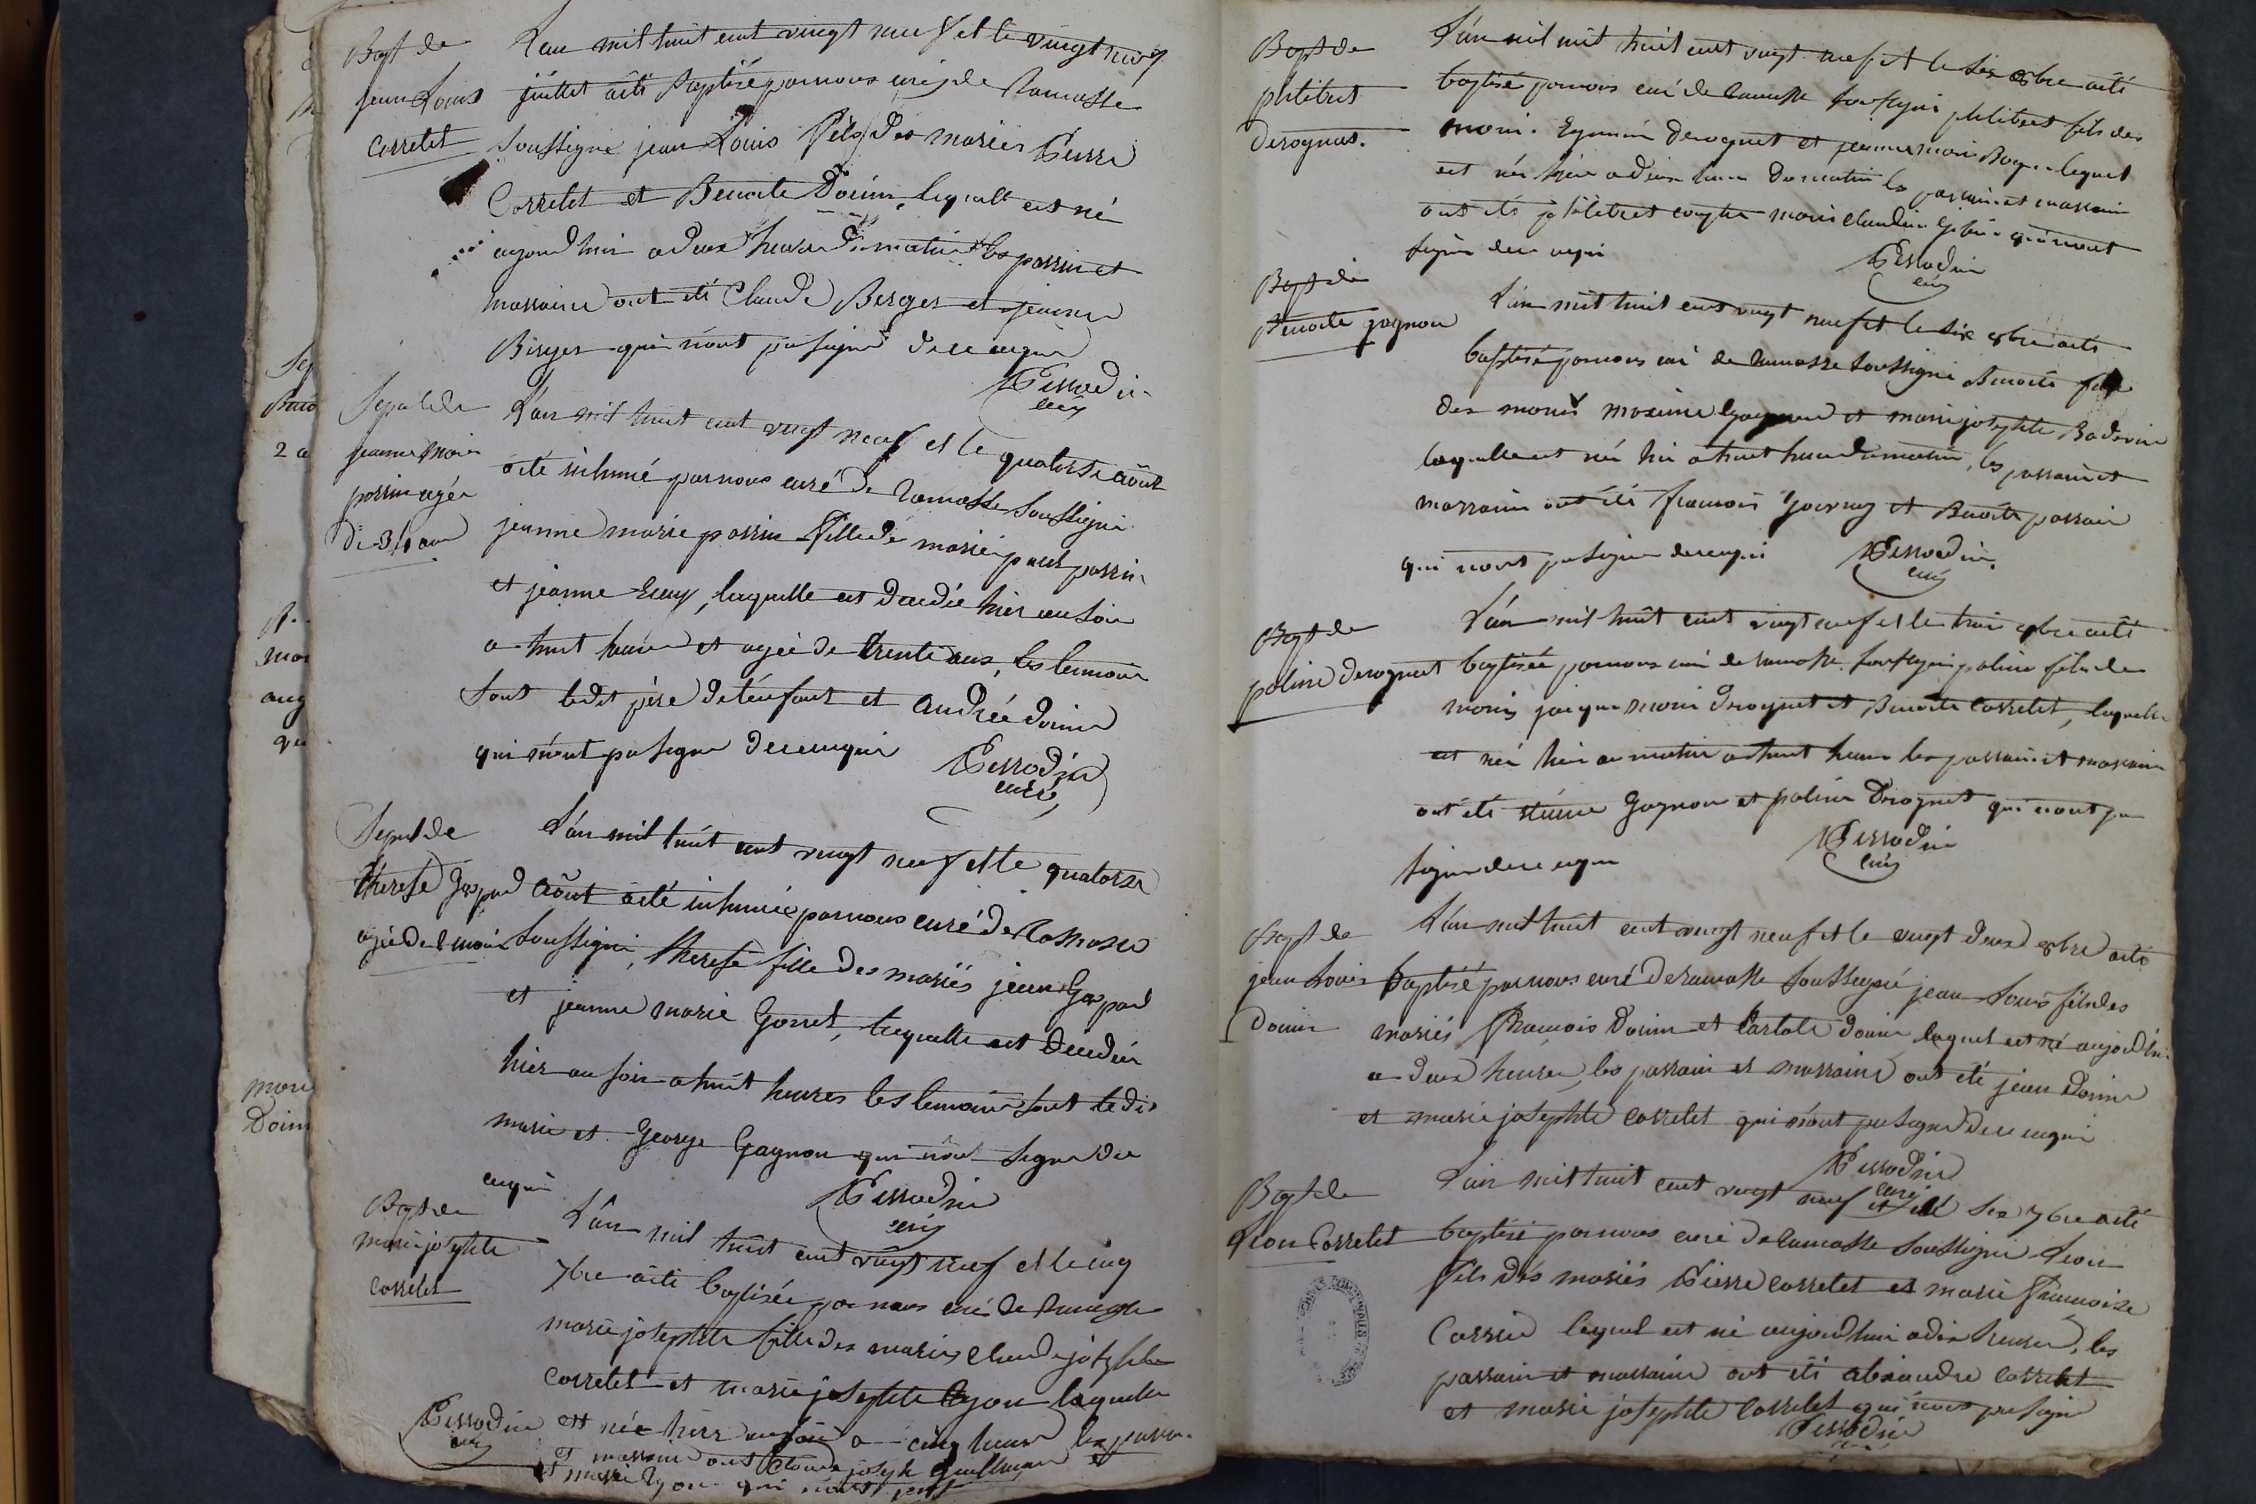 Bapt de
jean Louis
Corretet
L'an mil huit cent vingt neuf et le vingt neuf
juillet a été Baptisé par nous curé de Ramasse
soussigné jean Louis fils des mariés Pierre
Corretet et Benoite Doüin, lequell est né
aujourd'hui a deux heures du matin les parrin et
marraine ont été Claude Berger et jeanne
Berger qui n'ont pu signé de ce requi
curé
Sepul de
jeanne marie
perrin agée
de 30 ans
L'an mil huit cent vingt neuf et le quatorse août
a été inhumé par nous curé de Ramasse soussigné
jeanne marie perrin fille de marié paul perrin
et jeanne laquelle est decedée hier au soir
a huit heures et agée de trente ans, les temoins
sont ledit père de l'enfant et André doüin
qui n'ont pu signer de ce requi
curé
Sepul de
therese Gaspard
agée de 8 mois
L'an mil huit cent vingt neuf et le quatorze
août a été inhumée par nous curé de Ramasse
soussigné, therese fille des mariés jean Gaspard
et jeanne marie Gorret, laquelle est decedée
hier au soir a huit heures les temoins sont le dit
marié et George Gagnon qui n'ont signé de ce
requi
curé
Bapt de
marie josephte
corretet
L'an mil huit cent vingt neuf et le cinq
7bre a été baptisée par nous curé de Ramasse
marie josephte fille des mariés Claude joseph
corretet et marie josephte laquelle
est née hier au soir a cinq heures les parrin
et marraine ont Claude joseph guillman
et marie qui n'ont pu
curé
Bapt de
philibert
derognat.
L'an mil huit cent vingt neuf et le six 8bre a été
baptisé par nous curé de Ramasse soussigné philibert fils des
mariés derognat et jeanne marie lequel
est né hier a dix heures du matin les parrain et marraine
ont été philibert marie Claudine qui n'ont
signé de ce requi
curé
Bapt de
Benoite gagnon
L'an mil huit cent vingt neuf et le six 8bre a été
baptisé par nous curé de Ramasse soussigné Benoite fille
des mariés maxime gagnon et marie josephte
laquelle est né hier a huit heures du matin, les parrain et
marraine ont été francois et Benoite
qui n'ont pu signer de ce requi
curé
Bapt de
poline derognat
L'an mil huit cent vingt neuf et le trois 8bre a été
baptisée par nous curé de ramasse soussigné poline fille des
mariés jacque marie derognat et Benoite Corretet, laquelle
est née hier au matin a huit heures les parrain et marraine
ont été étienne Gagnon et poline Derognat qui n'ont pu
signer de ce requi
curé
Bapt de
jean Louis
Doüin
L'an mil huit cent vingt neuf et le vingt deux 8bre a été
baptisé par nous curé de ramasse soussigné jean Louis fils des
mariés francois Doüin et doüin lequel est né aujourd'hui
a deux heures, les parrain et marraine ont été jean Doüin
et marie josephte corretet qui n'ont pu signer de ce requi
curé
Bapt de
Léon Corretet
L'an mil huit cent vingt neuf et le six 7bre a été
baptisé par nous curé de Ramasse soussigné Léon
fils des mariés Pierre corretet et marie francoise
lequel est né aujourd'hui a dix heures, les
parrain et marraine ont été alexandre corretet
et marie josephte Corretet qui n'ont pu signé